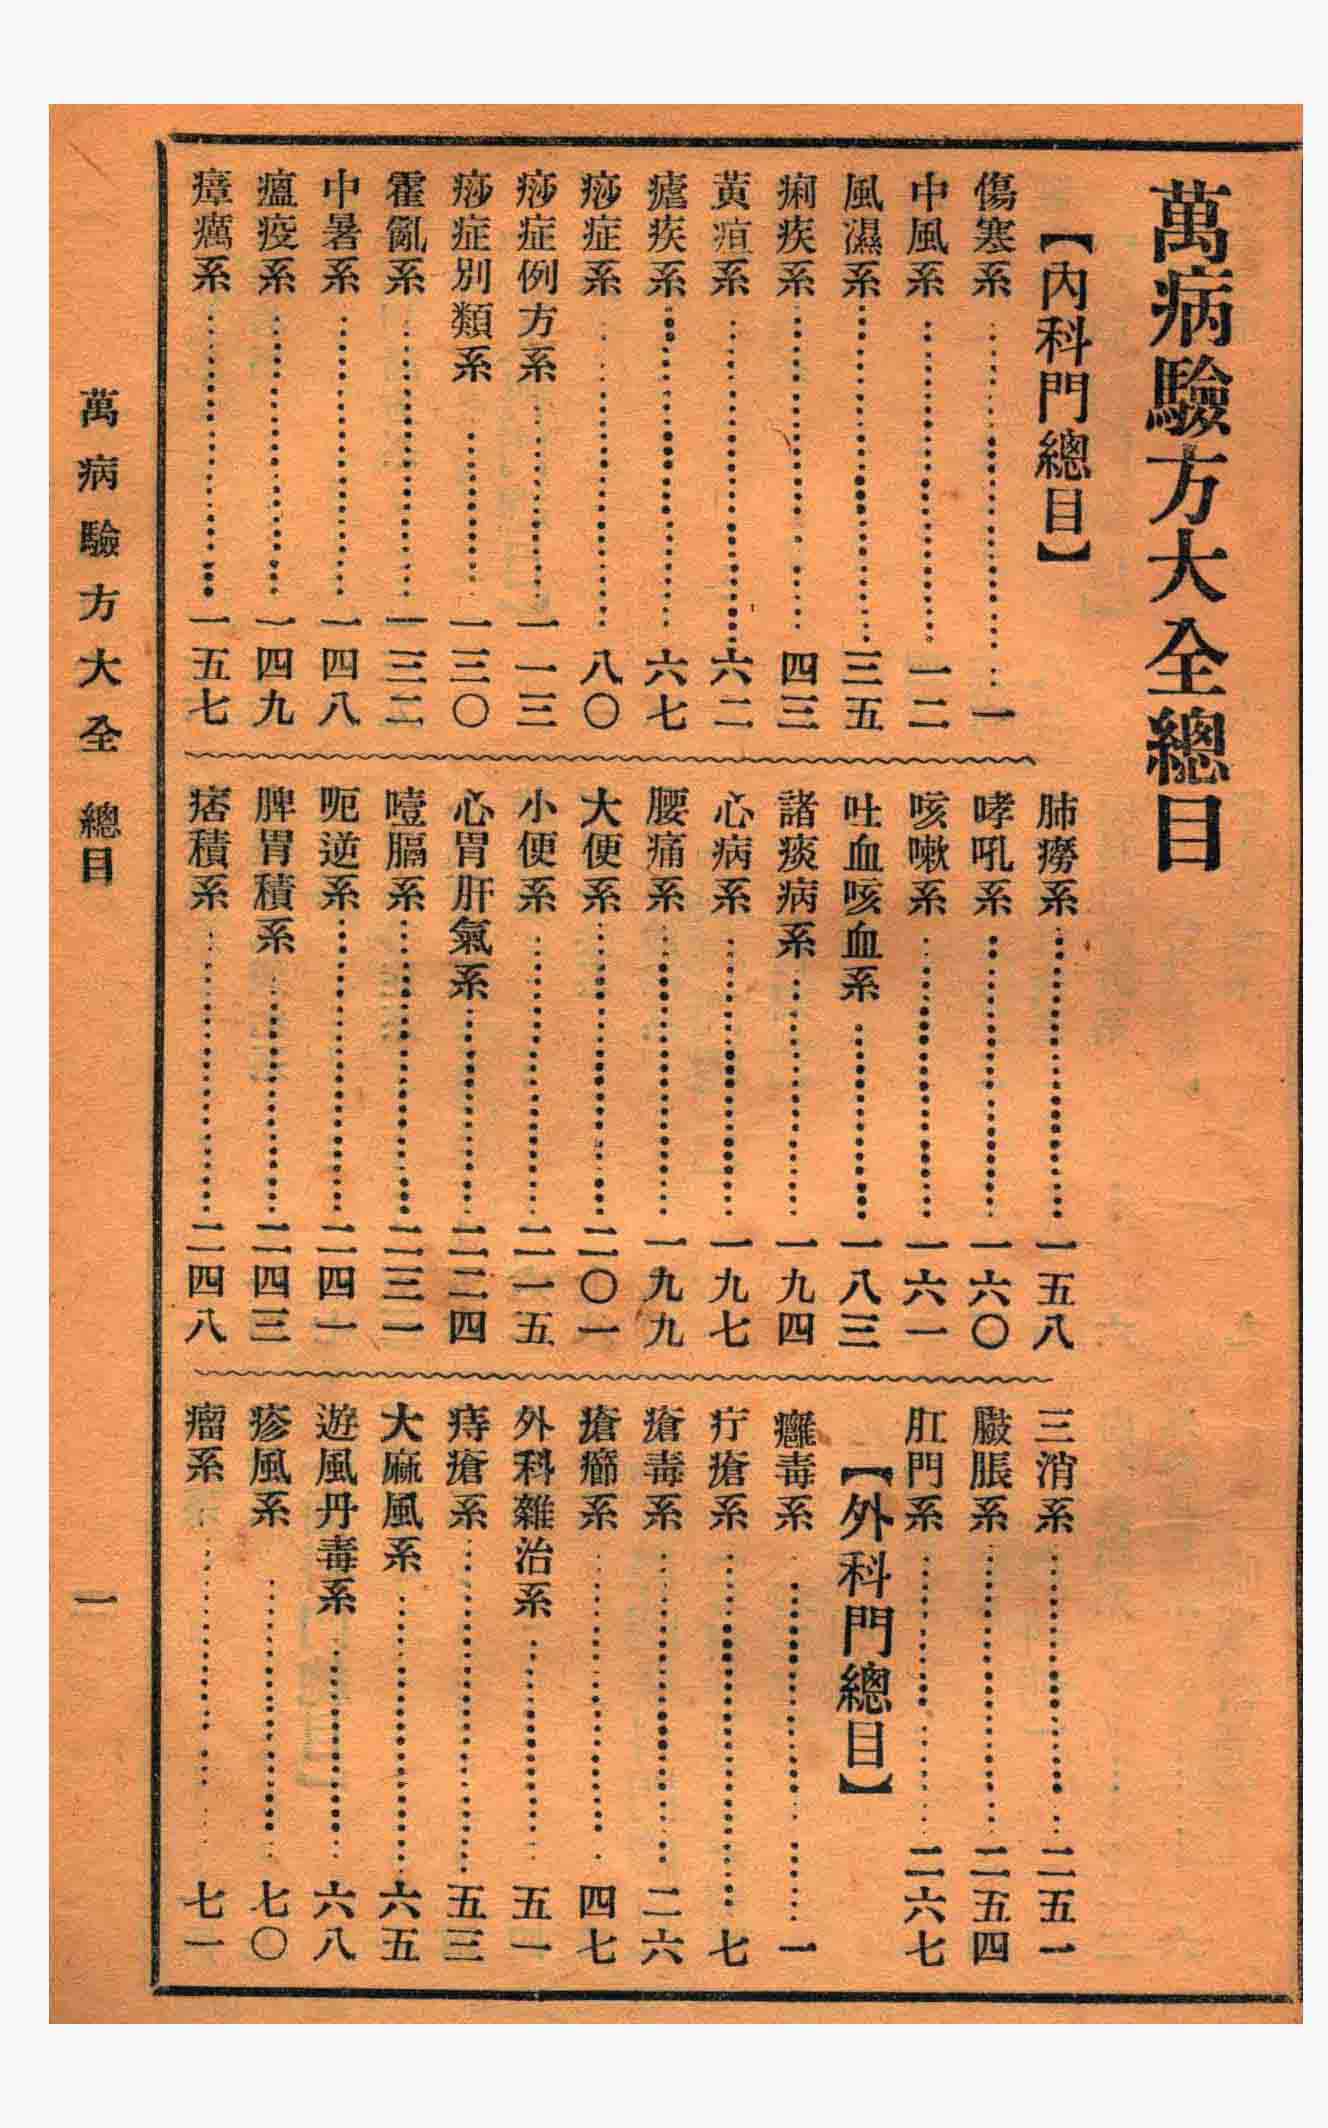 萬病驗方大全總目
【內科門總目】
傷寒系…………一
中風系…………一二
風濕系…………三五
痢疾系…………四三
黃疸系…………六二
瘧疾系…………六七
痧症系…………八〇
痧症例方系…………一一三
痧症別類系…………一三〇
霍亂系…………一三二
中暑系…………一四八
瘟疫系…………一四九
瘴癘系…………一五七
肺癆系…………一五八
哮吼系…………一六〇
咳嗽系…………一六一
吐血咳血系…………一八三
諸痰病系…………一九四
心病系…………一九七
腰痛系…………一九九
大便系…………二〇一
小便系…………二一五
心胃肝氣系…………二二四
噎膈系…………二三一
呃逆系…………二四一
脾胃積系…………二四三
痞積系…………二四八
三消系…………二五一
臌脹系…………二五四
肛門系…………二六七
【外科門總目】
癰毒系…………一
疔瘡系…………七
瘡毒系…………二六
瘡癤系…………四七
外科雜治系…………五一
痔瘡系…………五三
大麻風系…………六五
遊風丹毒系…………六八
疹風系…………七〇
瘤系…………七一
萬病驗方大全 總目 一